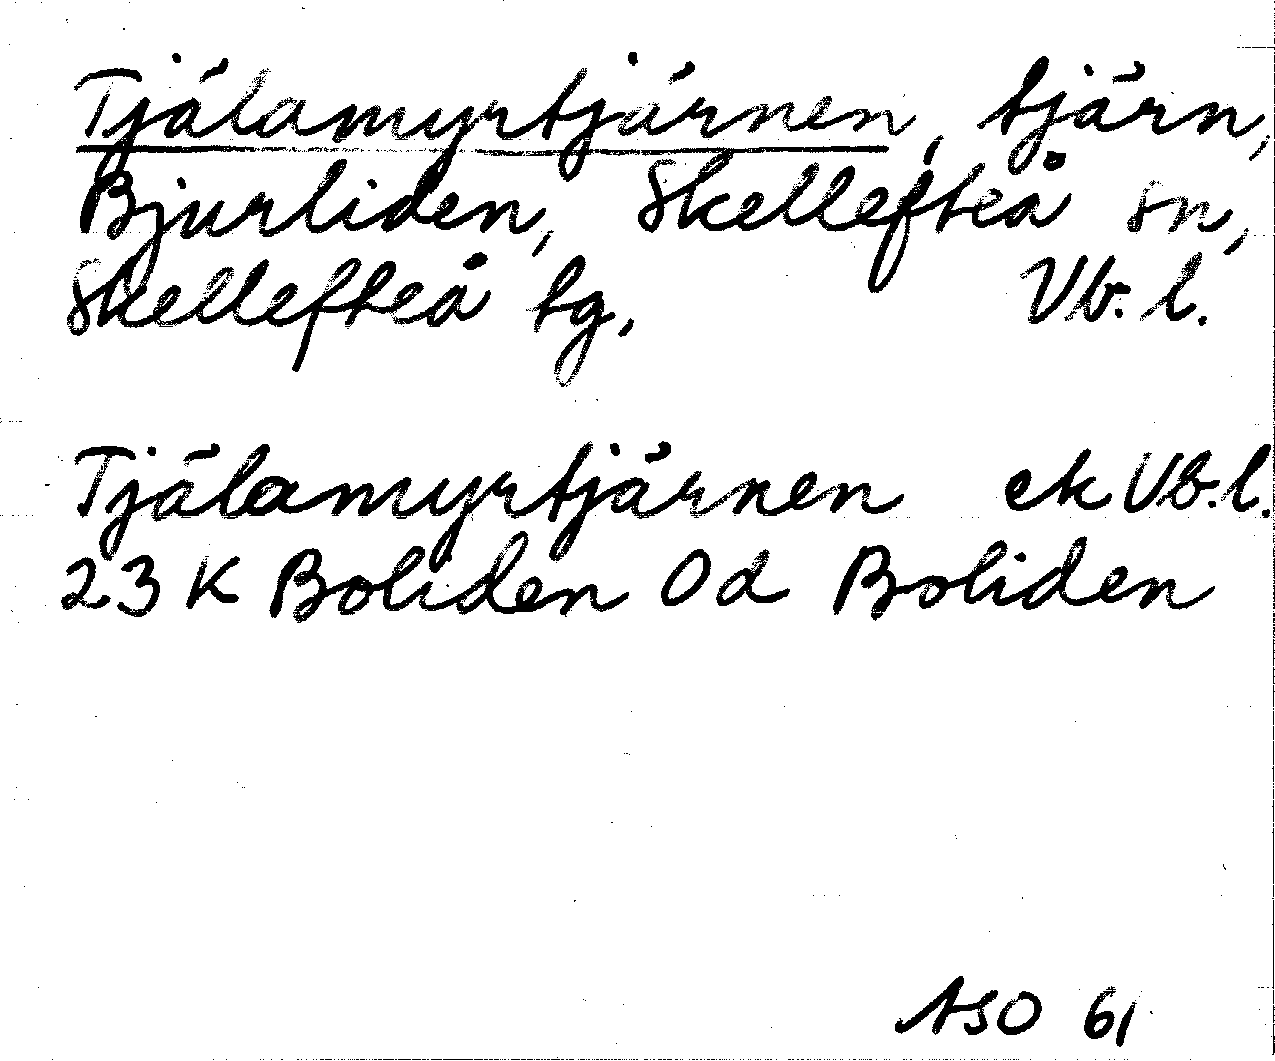 Tjälamyrtjärnen, tjärn,
Bjurliden, Skellefteå sn,
Skellefteå tg. Vb. l.
Tjälamyrtjärnen ek Vb. l.
23 K Boliden 0d Boliden
ASO 61